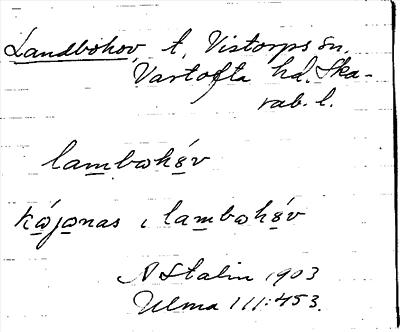 Landbohov, t, Vistorps sn.
Vartofta hd. Ska-
rab. l.
lambɷhǿv
kɷ́jɷnas ı lambɷhǿv
A Stalin 1903
Ulma 111:453.